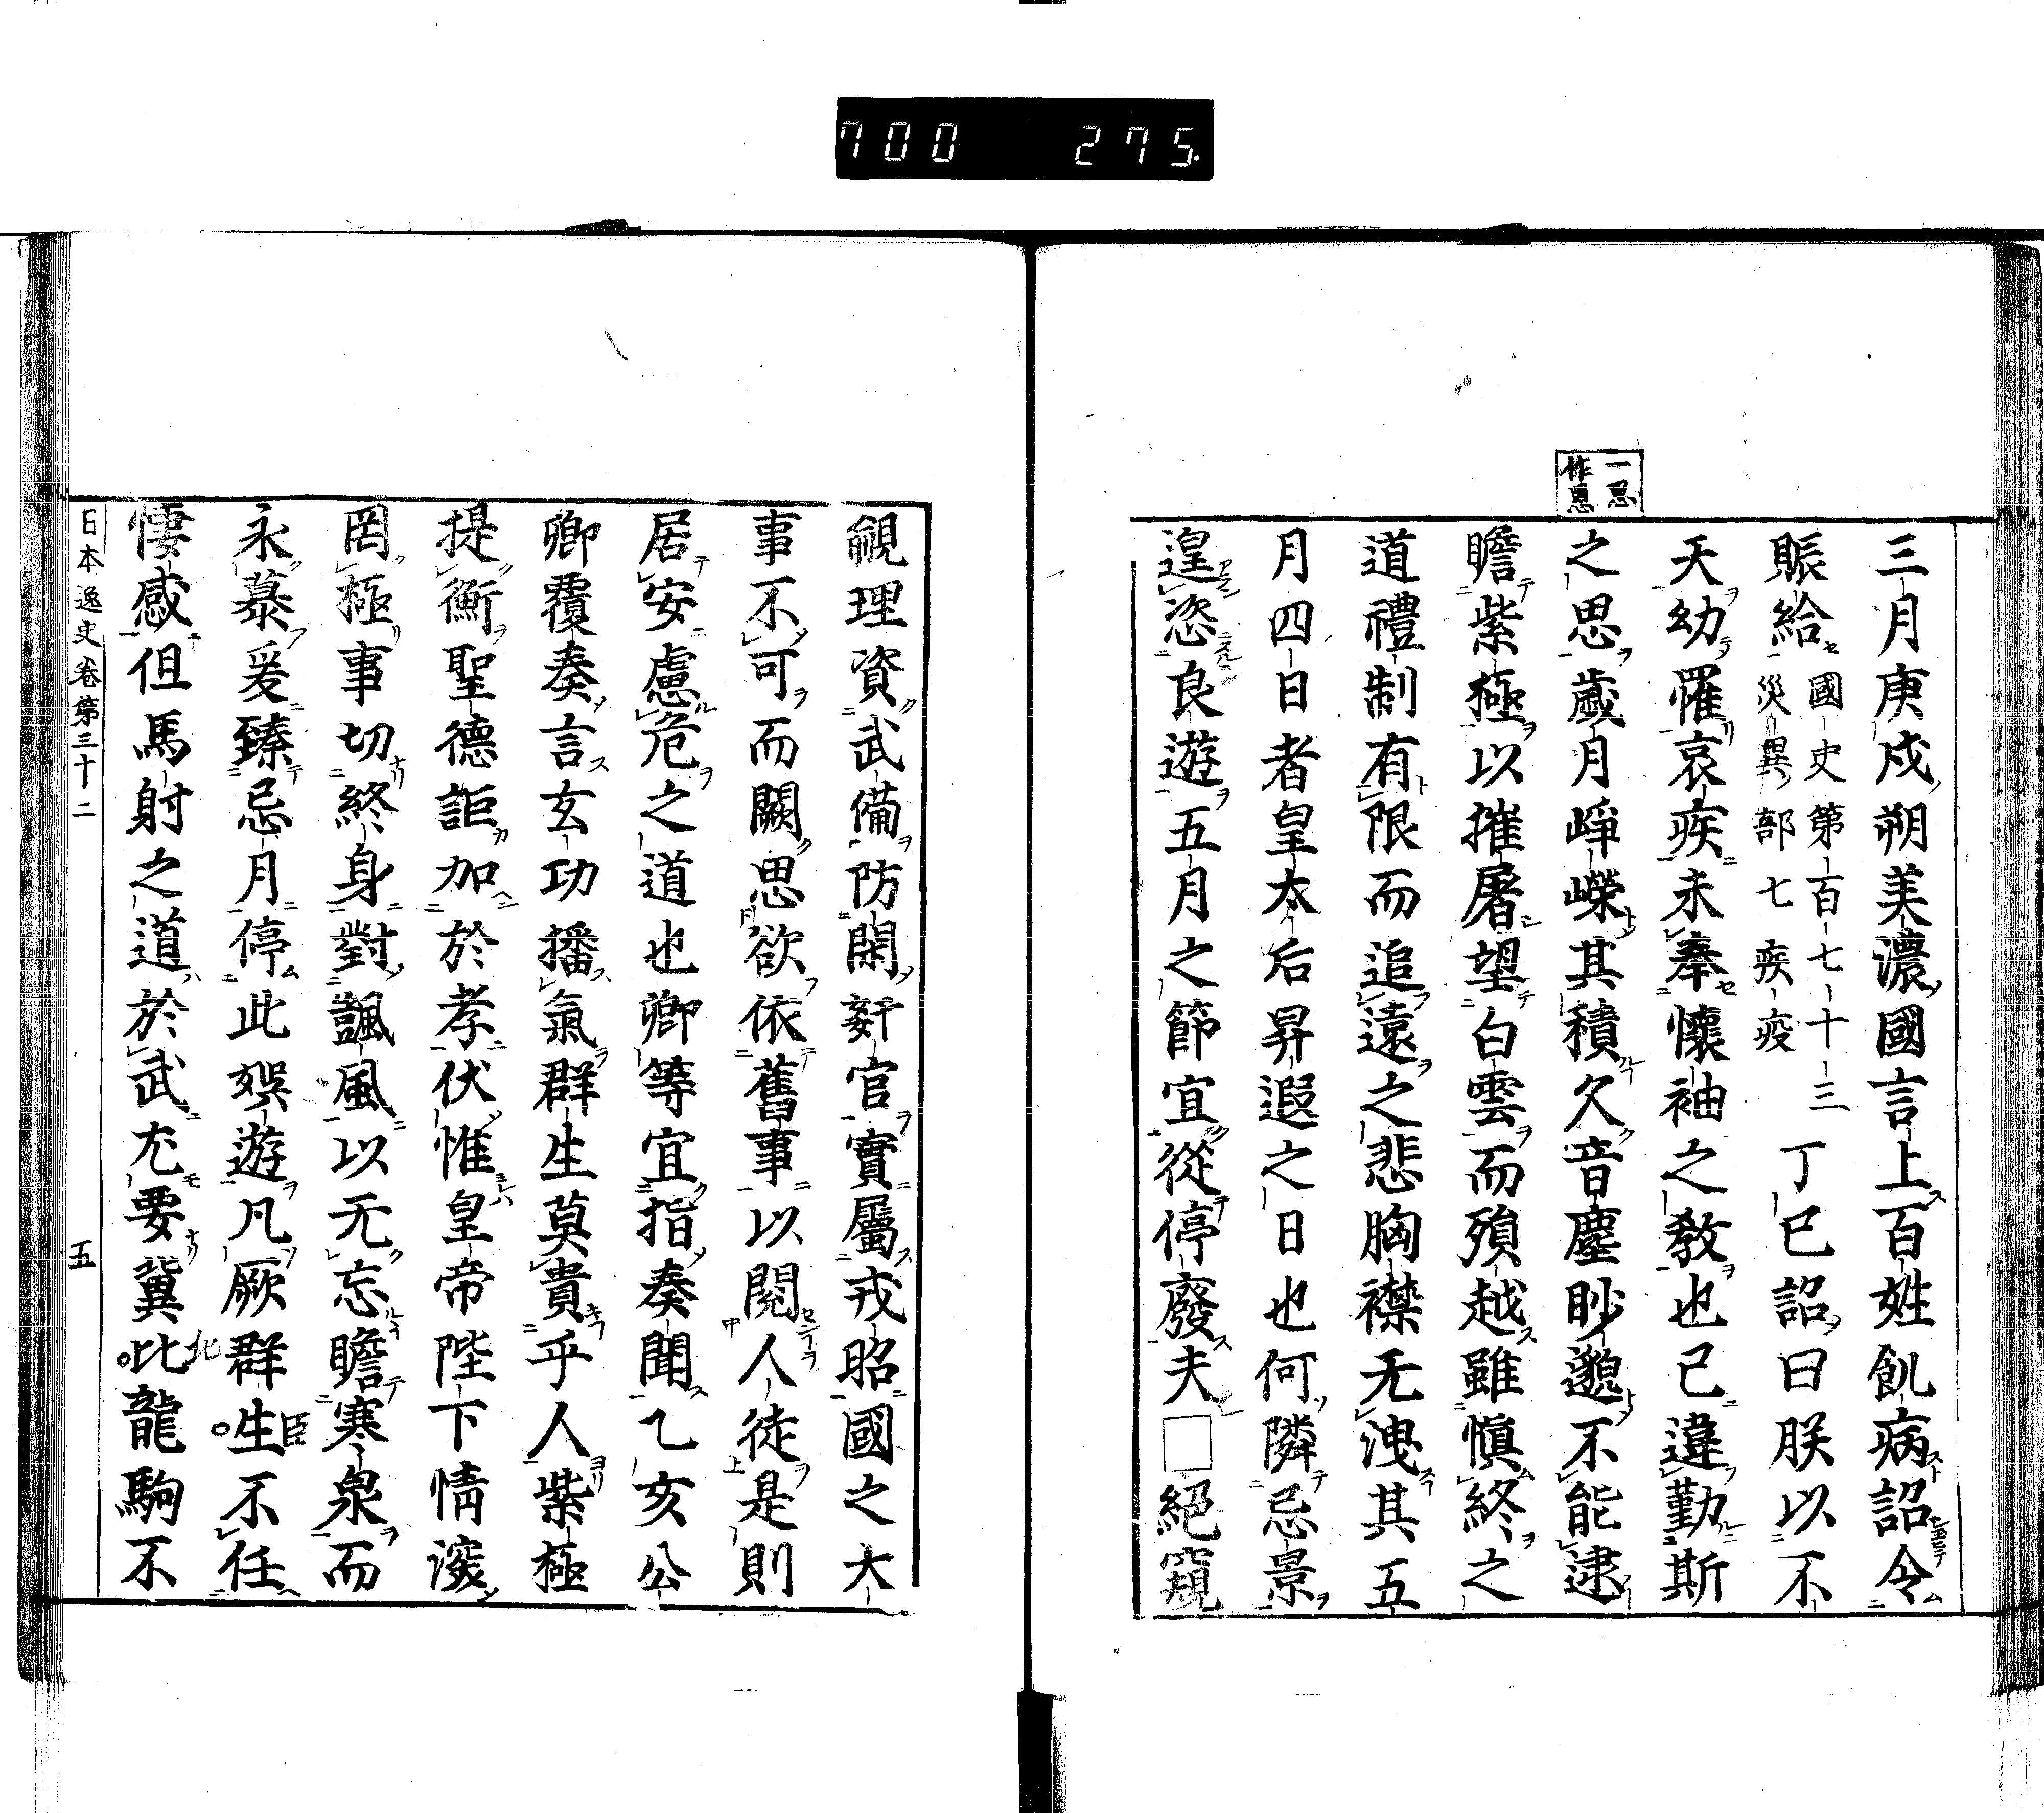 700 275
一思
作恩
三月庚戌朔美濃國言上百姓飢病詔令
賑給國史第百七十三災異部七疾疫丁巳詔曰朕以不
天幼罹哀疾未奉懷袖之教也已違勤斯
之思歲月崢嶸其積久音塵眇邈不能逮
瞻紫極以摧屠望白雲而殞越雖慎終之
道禮制有限而追遠之悲胸襟无洩其五
月四日者皇太后昇遐之日也何隣忌景
遑恣良遊五月之節宜從停廢夫□絕窺
覦理資武備防閑姧官實屬戎昭國之大
事不可而闕思欲依舊事以閱人徒是則
居安慮危之道也卿等宜指奏聞乙亥公
卿覆奏言玄功播氣群生莫貴乎人紫極
提衡聖德詎加於孝伏惟皇帝陛下情深
罔極事切終身對颽風以无忘瞻寒泉而
永慕爰臻忌月停此娯遊凡厥群生不任
悽感但馬射之道於武尤要冀比龍駒不
北
臣
日本逸史卷第三十二 五